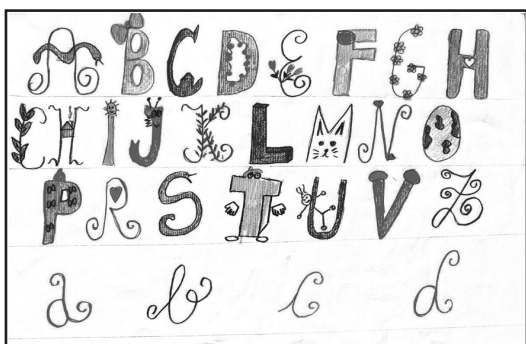 A B C D E F G H
CH I J K L M N O
P R S T U V Z
a b c d